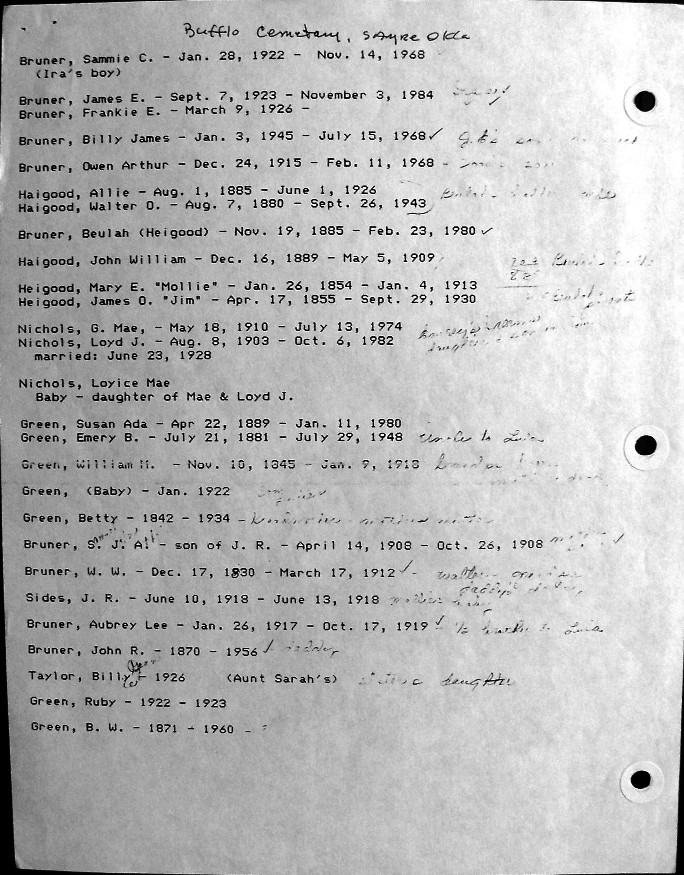 Bufflo Cemetary, Sayre Okla
Bruner, Sammie C. - Jan. 28, 1922 - Nov. 14, 1968
(Ira's boy)
Bruner, James E. - Sept. 7, 1923 - November 3, 1984
Bruner, Frankie E. - March 9, 1926 -
Bruner, Billy James - Jan. 3, 1945 - July 15, 1968 ✓
Bruner, Owen Arthur - Dec. 24, 1915 - Feb. 11, 1968 -
Haigood, Allie - Aug. 1, 1885 - June 1, 1926
Haigood, Walter O. - Aug. 7, 1880 - Sept. 26, 1943
Bruner, Beulah (Heigood) - Nov. 19, 1885 - Feb. 23, 1980 ✓
Haigood, John William - Dec. 16, 1889 - May 5, 1909
Heigood, Mary E. "Mollie" - Jan. 26, 1854 - Jan. 4, 1913
Heigood, James O. "Jim" - Apr. 17, 1855 - Sept. 29, 1930
Nichols, G. Mae, - May 18, 1910 - July 13, 1974
Nichols, Loyd J. - Aug. 8, 1903 - Oct. 6, 1982
married: June 23, 1928
Nichols, Loyice Mae
Baby - daughter of Mae & Loyd J.
Green, Susan Ada - Apr 22, 1889 - Jan. 11, 1980
Green, Emery B. - July 21, 1881 - July 29, 1948 Uncle to Lula
Green, William H. - Nov. 18, 1845 - Jan. 9, 1918
Green, (Baby) - Jan. 1922
Green, Betty - 1842 - 1934 -
Bruner, S. J. A. - son of J. R. - April 14, 1908 - Oct. 26, 1908 ✓
Bruner, W. W. - Dec. 17, 1830 - March 17, 1912 ✓ -
Sides, J. R. - June 10, 1918 - June 13, 1918
Bruner, Aubrey Lee - Jan. 26, 1917 - Oct. 17, 1919 ✓ to Lula
Bruner, John R. - 1870 - 1956 ✓
Taylor, Billy - 1926 (Aunt Sarah's) daughter
Green, Ruby - 1922 - 1923
Green, B. W. - 1871 - 1960 -